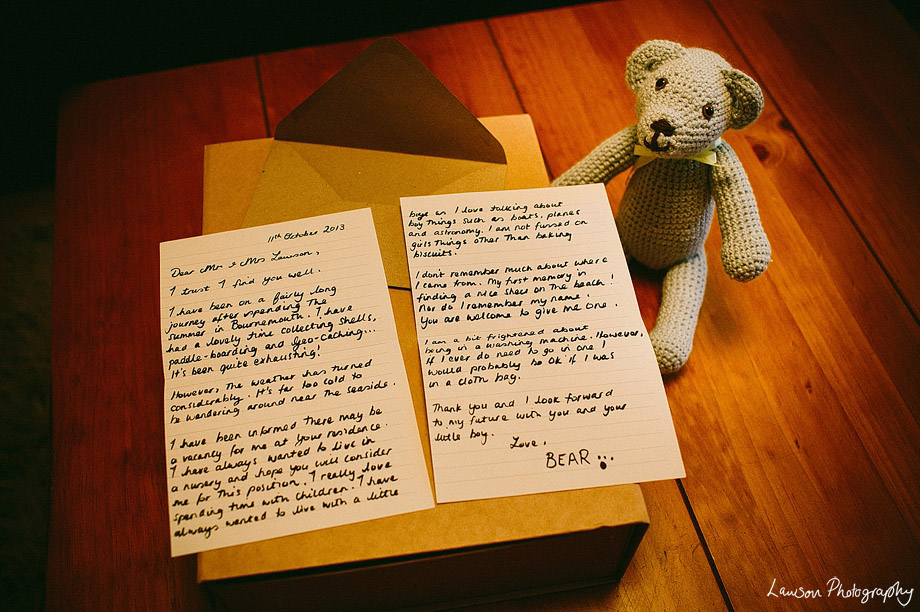 11th October 2013
Dear Mr & Mrs Lawson,
I trust I find you well.
I have been on a fairly long
journey after spending the
summer in Bournemouth. I have
had a lovely time collecting shells,
paddle-boarding and Geo-Caching...
It's been quite exhausting!
However, the weather has turned
considerably. It's far too cold to
be wandering around near the seaside.
I have been informed there may be
a vacancy for me at your residence.
I have always wanted to live in
a nursery and hope you will consider
me for this position. I really love
spending time with children. I have
always wanted to live with a little
boy as I love talking about
boy things such as boats, planes
and astronomy. I am not fussed on
girls things other than baking
biscuits.
I don't remember much about where
I came from. My first memory is
finding a nice shell on the beach!
Nor do I remember my name.
You are welcome to give me one.
I am a bit frightened about
being in a washing machine. However,
if I ever do need to go in one I
would probably be OK if I was
in a cloth bag.
Thank you and I look forward
to my future with you and your
little boy.
Love,
BEAR
Lawson Photography